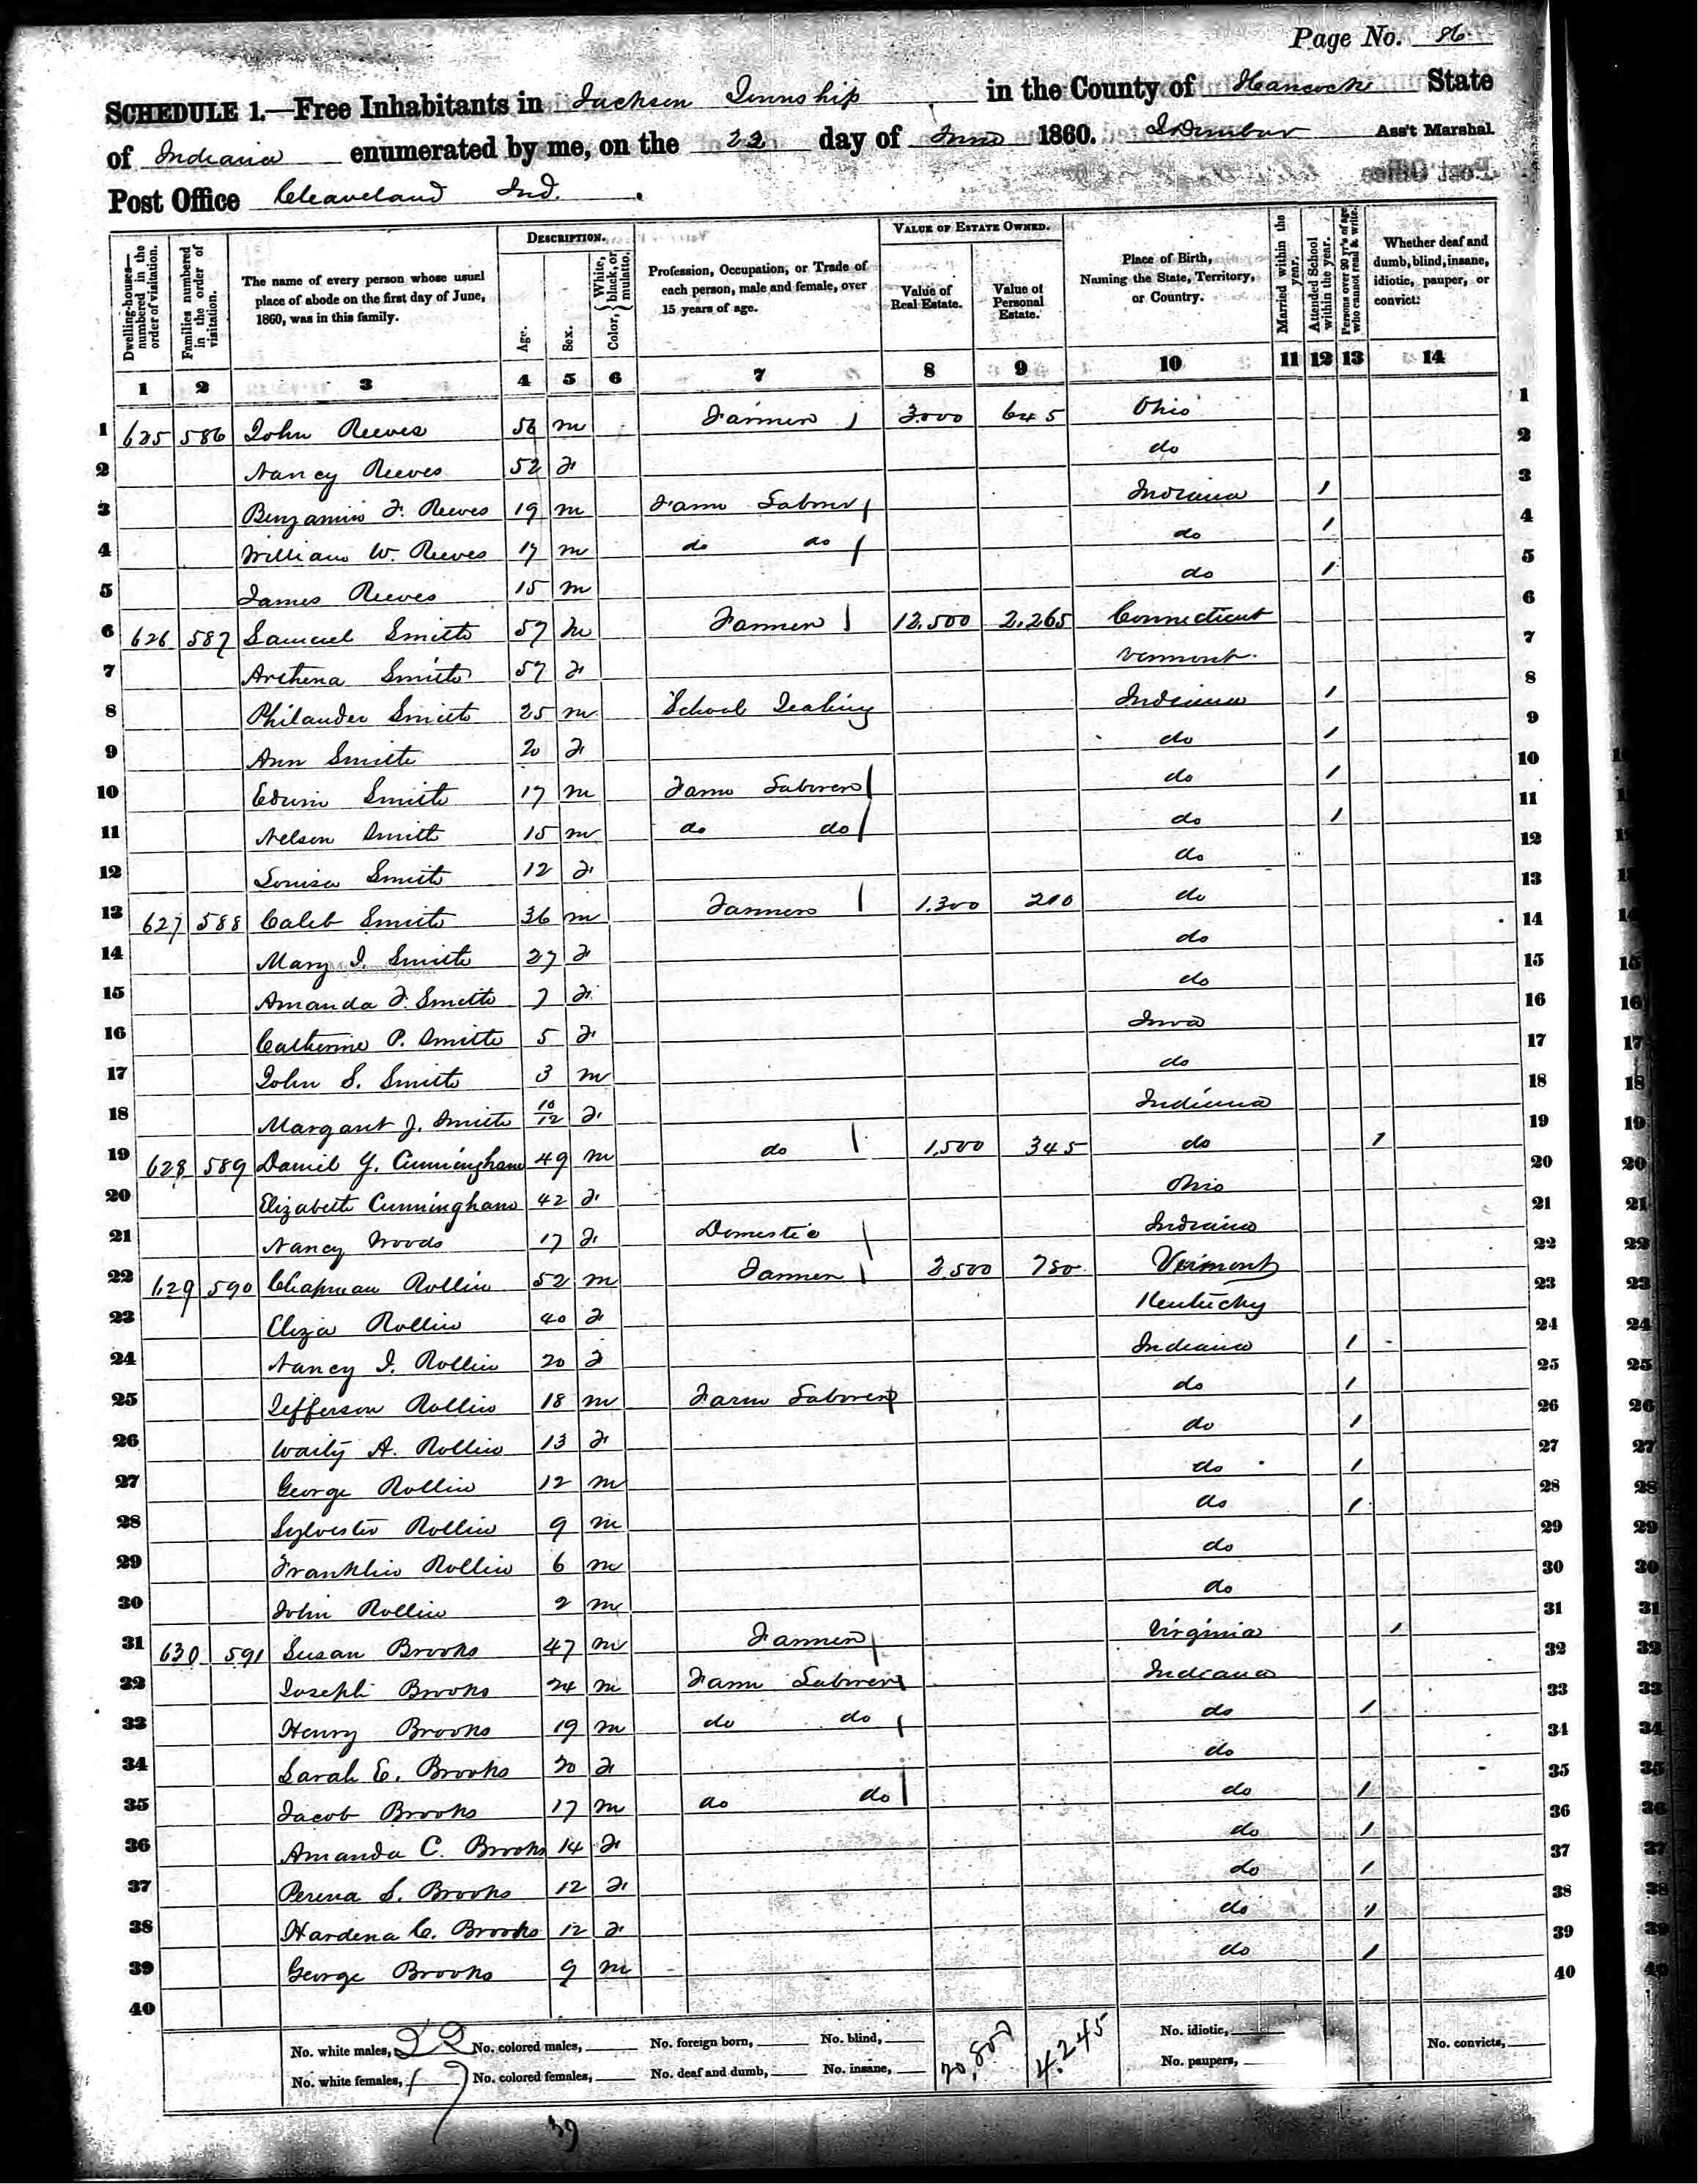 Page No. 86
SCHEDULE 1.—Free Inhabitants in Jackson Township in the County of Hancock State
of Indiana enumerated by me, on the 22 day of June 1860. Ass't Marshal.
Post Office Cleaveland Ind.
Dwelling-houses—numbered in the order of visitation. Families numbered in the order of visitation. The name of every person whose usual place of abode on the first day of June, 1860, was in this family. DESCRIPTION. Age. Sex. Color, {White, black, or mulatto. Profession, Occupation, or Trade of each person, male and female, over 15 years of age. VALUE OF ESTATE OWNED. Value of Real Estate. Value of Personal Estate. Place of Birth, Naming the State, Territory, or Country. Married within the year. Attended School within the year. Persons over 20 yr's of age who cannot read & write. Whether deaf and dumb, blind, insane, idiotic, pauper, or convict.
1 2 3 4 5 6 7 8 9 10 11 12 13 14
1 625 586 John Reeves 56 m Farmer 3000 645 Ohio 1
2 Nancy Reeves 52 F do 2
3 Benjamin F. Reeves 19 m Farm Laborer Indiana 1 3
4 William W. Reeves 17 m do do do 1 4
5 James Reeves 15 m do 1 5
6 626 587 Samuel Smith 57 m Farmer 12.500 2.265 Connecticut 6
7 Arthena Smith 57 F Vermont 7
8 Philander Smith 25 m School Teaching Indiana 1 8
9 Ann Smith 20 F do 1 9
10 Edwin Smith 17 m Farm Laborer do 1 10
11 Nelson Smith 15 m do do do 1 11
12 Louisa Smith 12 F do 12
13 627 588 Caleb Smith 36 m Farmer 1.300 210 do 13
14 Mary J. Smith 27 F do 14
15 Amanda F. Smith 7 F do 15
16 Catherine P. Smith 5 F Iowa 16
17 John S. Smith 3 m do 17
18 Margaret J. Smith 10/12 F Indiana 18
19 628 589 Daniel Y. Cunningham 49 m do 1,500 345 do 1 19
20 Elizabeth Cunningham 42 F Ohio 20
21 Nancy Woods 17 F Domestic Indiana 21
22 629 590 Chapman Rollin 52 m Farmer 2.500 780 Vermont 22
23 Eliza Rollin 40 F Kentucky 23
24 Nancy J. Rollin 20 F Indiana 1 24
25 Jefferson Rollin 18 m Farm Laborer do 1 25
26 Waity A. Rollin 13 F do 1 26
27 George Rollin 12 m do 1 27
28 Sylvester Rollin 9 m do 1 28
29 Franklin Rollin 6 m do 29
30 John Rollin 2 m do 30
31 630 591 Susan Brooks 47 m Farmer Virginia 1 31
32 Joseph Brooks 24 m Farm Laborer Indiana 32
33 Henry Brooks 19 m do do do 1 33
34 Sarah E. Brooks 20 F do 34
35 Jacob Brooks 17 m do do do 1 35
36 Amanda C. Brooks 14 F do 1 36
37 Perena S. Brooks 12 F do 1 37
38 Hardena C. Brooks 12 F do 1 38
39 George Brooks 9 m do 1 39
40 40
No. white males, 22 No. colored males, No. foreign born, No. blind, 20,800 4.245 No. idiotic, No. convicts,
No. white females, 17 No. colored females, No. deaf and dumb, No. insane, No. paupers,
39